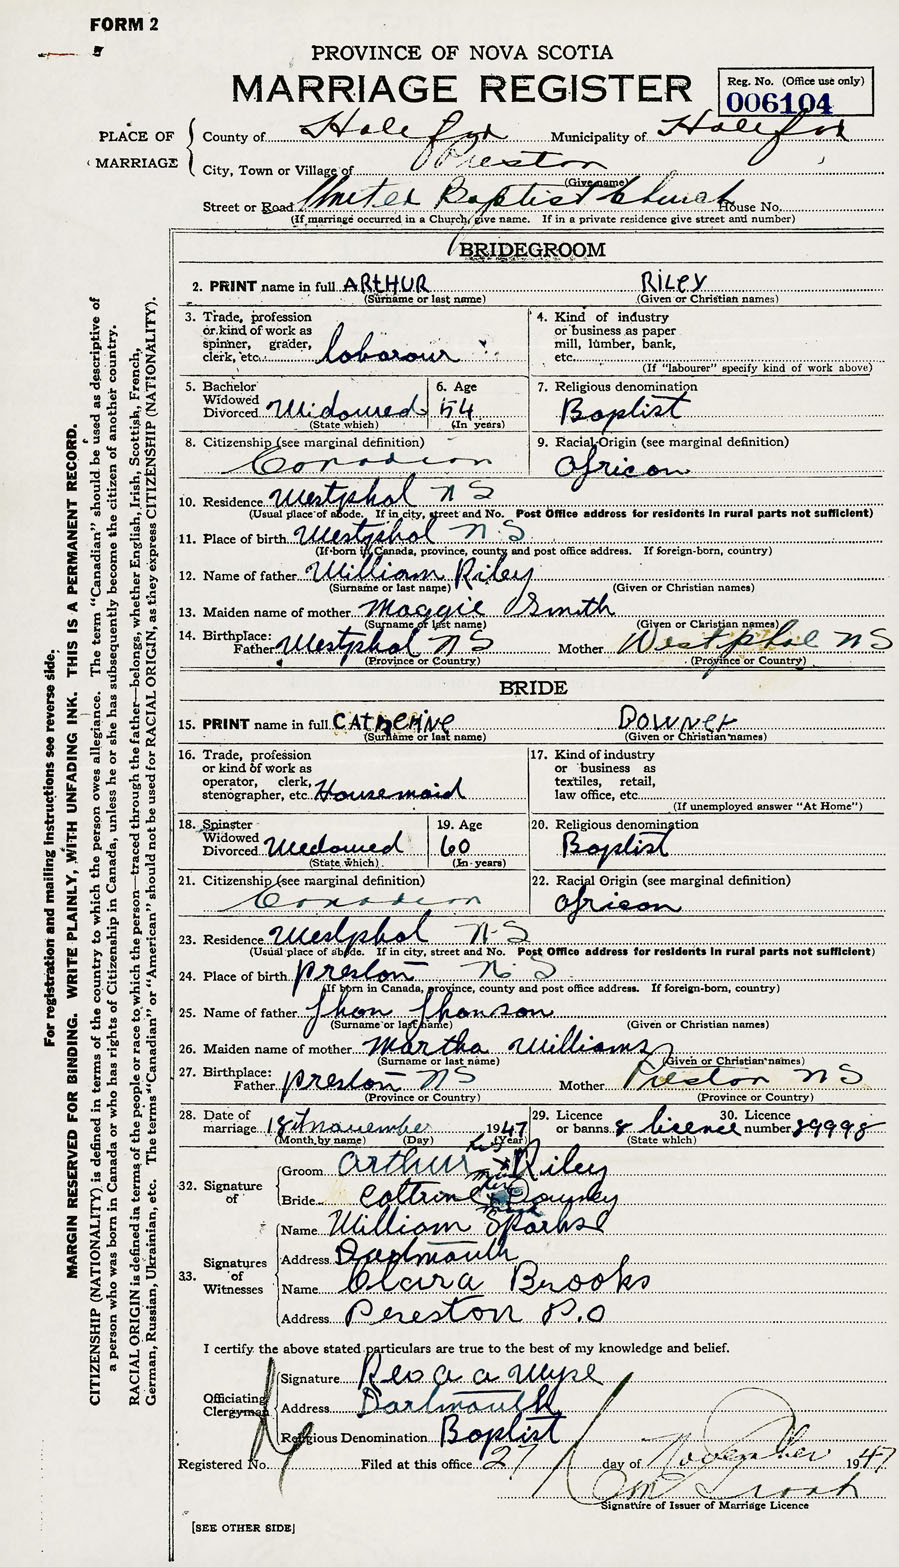 FORM 2
PROVINCE OF NOVA SCOTIA
MARRIAGE REGISTER
Reg. No. (Office use only)
006104
PLACE OF MARRIAGE
County of Halifax Municipality of Halifax
City, Town or Village of Preston
(Give name)
Street or Road United Baptist Church House No.
(If marriage occurred in a Church, give name. If in a private residence give street and number)
BRIDEGROOM
2. PRINT name in full ARTHUR RILEY
(Surname or last name) (Given or Christian names)
3. Trade, profession or kind of work as spinner, grader, clerk, etc. labarour
4. Kind of industry or business as paper mill, lumber, bank, etc.
(If "labourer" specify kind of work above)
5. Bachelor Widowed Divorced Widowed
(State which)
6. Age 54
(In years)
7. Religious denomination Baptist
8. Citizenship (see marginal definition) Canadian
9. Racial Origin (see marginal definition) African
10. Residence Westphal N S
(Usual place of abode. If in city, street and No. Post Office address for residents in rural parts not sufficient)
11. Place of birth Westphal N.S.
(If born in Canada, province, county and post office address. If foreign-born, country)
12. Name of father William Riley
(Surname or last name) (Given or Christian names)
13. Maiden name of mother Maggie Smith
(Surname or last name) (Given or Christian names)
14. Birthplace: Father Westphal N S Mother Westphal N S
(Province or Country) (Province or Country)
BRIDE
15. PRINT name in full CATHERINE DOWNEY
(Surname or last name) (Given or Christian names)
16. Trade, profession or kind of work as operator, clerk, stenographer, etc. Housemaid
17. Kind of industry or business as textiles, retail, law office, etc.
(If unemployed answer "At Home")
18. Spinster Widowed Divorced Wedowed
(State which)
19. Age 60
(In years)
20. Religious denomination Baptist
21. Citizenship (see marginal definition) Canadian
22. Racial Origin (see marginal definition) African
23. Residence Westphal N-S
(Usual place of abode. If in city, street and No. Post Office address for residents in rural parts not sufficient)
24. Place of birth Preston N.S
(If born in Canada, province, county and post office address. If foreign-born, country)
25. Name of father Jhon Jhonson
(Surname or last name) (Given or Christian names)
26. Maiden name of mother Martha Williams
(Surname or last name) (Given or Christian names)
27. Birthplace: Father Preston N S Mother Preston N S
(Province or Country) (Province or Country)
28. Date of marriage 18 November 1947
(Month by name) (Day) (Year)
29. Licence or banns licence
(State which)
30. Licence number 89998
32. Signature of
Groom Arthur his X Riley
Bride Cattrine Downey
33. Signatures of Witnesses
Name William Sparks
Address Dartmouth
Name Clara Brooks
Address Pereston P.O
I certify the above stated particulars are true to the best of my knowledge and belief.
Officiating Clergyman
Signature Rev a a Wyse
Address Dartmouth
Religious Denomination Baptist
Registered No. Filed at this office 27 day of November 1947
Signature of Issuer of Marriage Licence
[SEE OTHER SIDE]
For registration and mailing instructions see reverse side.
MARGIN RESERVED FOR BINDING. WRITE PLAINLY, WITH UNFADING INK. THIS IS A PERMANENT RECORD.
CITIZENSHIP (NATIONALITY) is defined in terms of the country to which the person owes allegiance. The term "Canadian" should be used as descriptive of
a person who was born in Canada or who has rights of Citizenship in Canada, unless he or she has subsequently become the citizen of another country.
RACIAL ORIGIN is defined in terms of the people or race to which the person—traced through the father—belongs, whether English, Irish, Scottish, French,
German, Russian, Ukrainian, etc. The terms "Canadian" or "American" should not be used for RACIAL ORIGIN, as they express CITIZENSHIP (NATIONALITY).